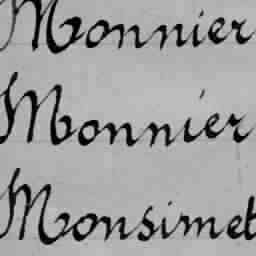 Monnier
Monnier
Monsimet